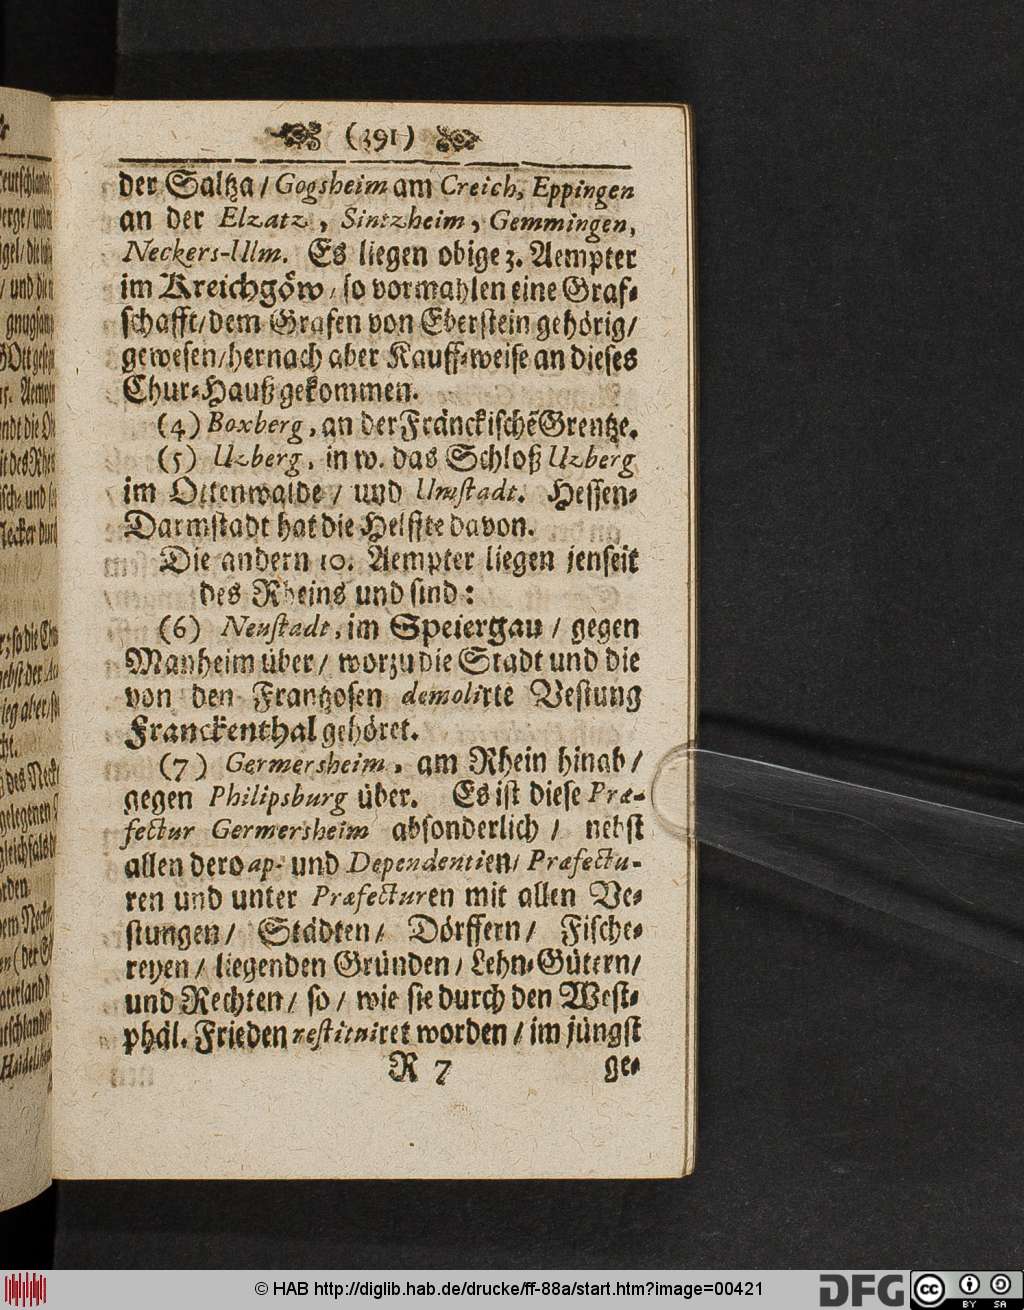 (391)
der Saltza / Gogsheim am Creich, Eppingen
an der Elzatz, Sintzheim, Gemmingen,
Neckers-Ulm. Es liegen obige 3. Aempter
im Kreichgöw, so vormahlen eine Graf⸗
schafft / dem Grafen von Eberstein gehörig /
gewesen / hernach aber Kauff⸗weise an dieses
Chur⸗Hauß gekommen.
(4) Boxberg, an der Fränckischẽ Grentze.
(5) Uzberg, in w. das Schloß Uzberg
im Ottenwalde / und Umstadt. Hessen⸗
Darmstadt hat die Helffte davon.
Die andern 10. Aempter liegen jenseit
des Rheins und sind:
(6) Neustadt, im Speiergau / gegen
Manheim über / worzu die Stadt und die
von den Frantzosen demolirte Vestung
Franckenthal gehöret.
(7) Germersheim, am Rhein hinab /
gegen Philipsburg über. Es ist diese Præ-
fectur Germersheim absonderlich / nebst
allen dero ap- und Dependentien / Præfectu-
ren und unter Præfecturen mit allen Ve⸗
stungen / Städten / Dörffern / Fische⸗
reyen / liegenden Gründen / Lehn⸗Gütern /
und Rechten / so / wie sie durch den West⸗
phäl. Frieden restituiret worden / im jüngst
R 7 ge⸗
© HAB http://diglib.hab.de/drucke/ff-88a/start.htm?image=00421
DFG
cc BY SA